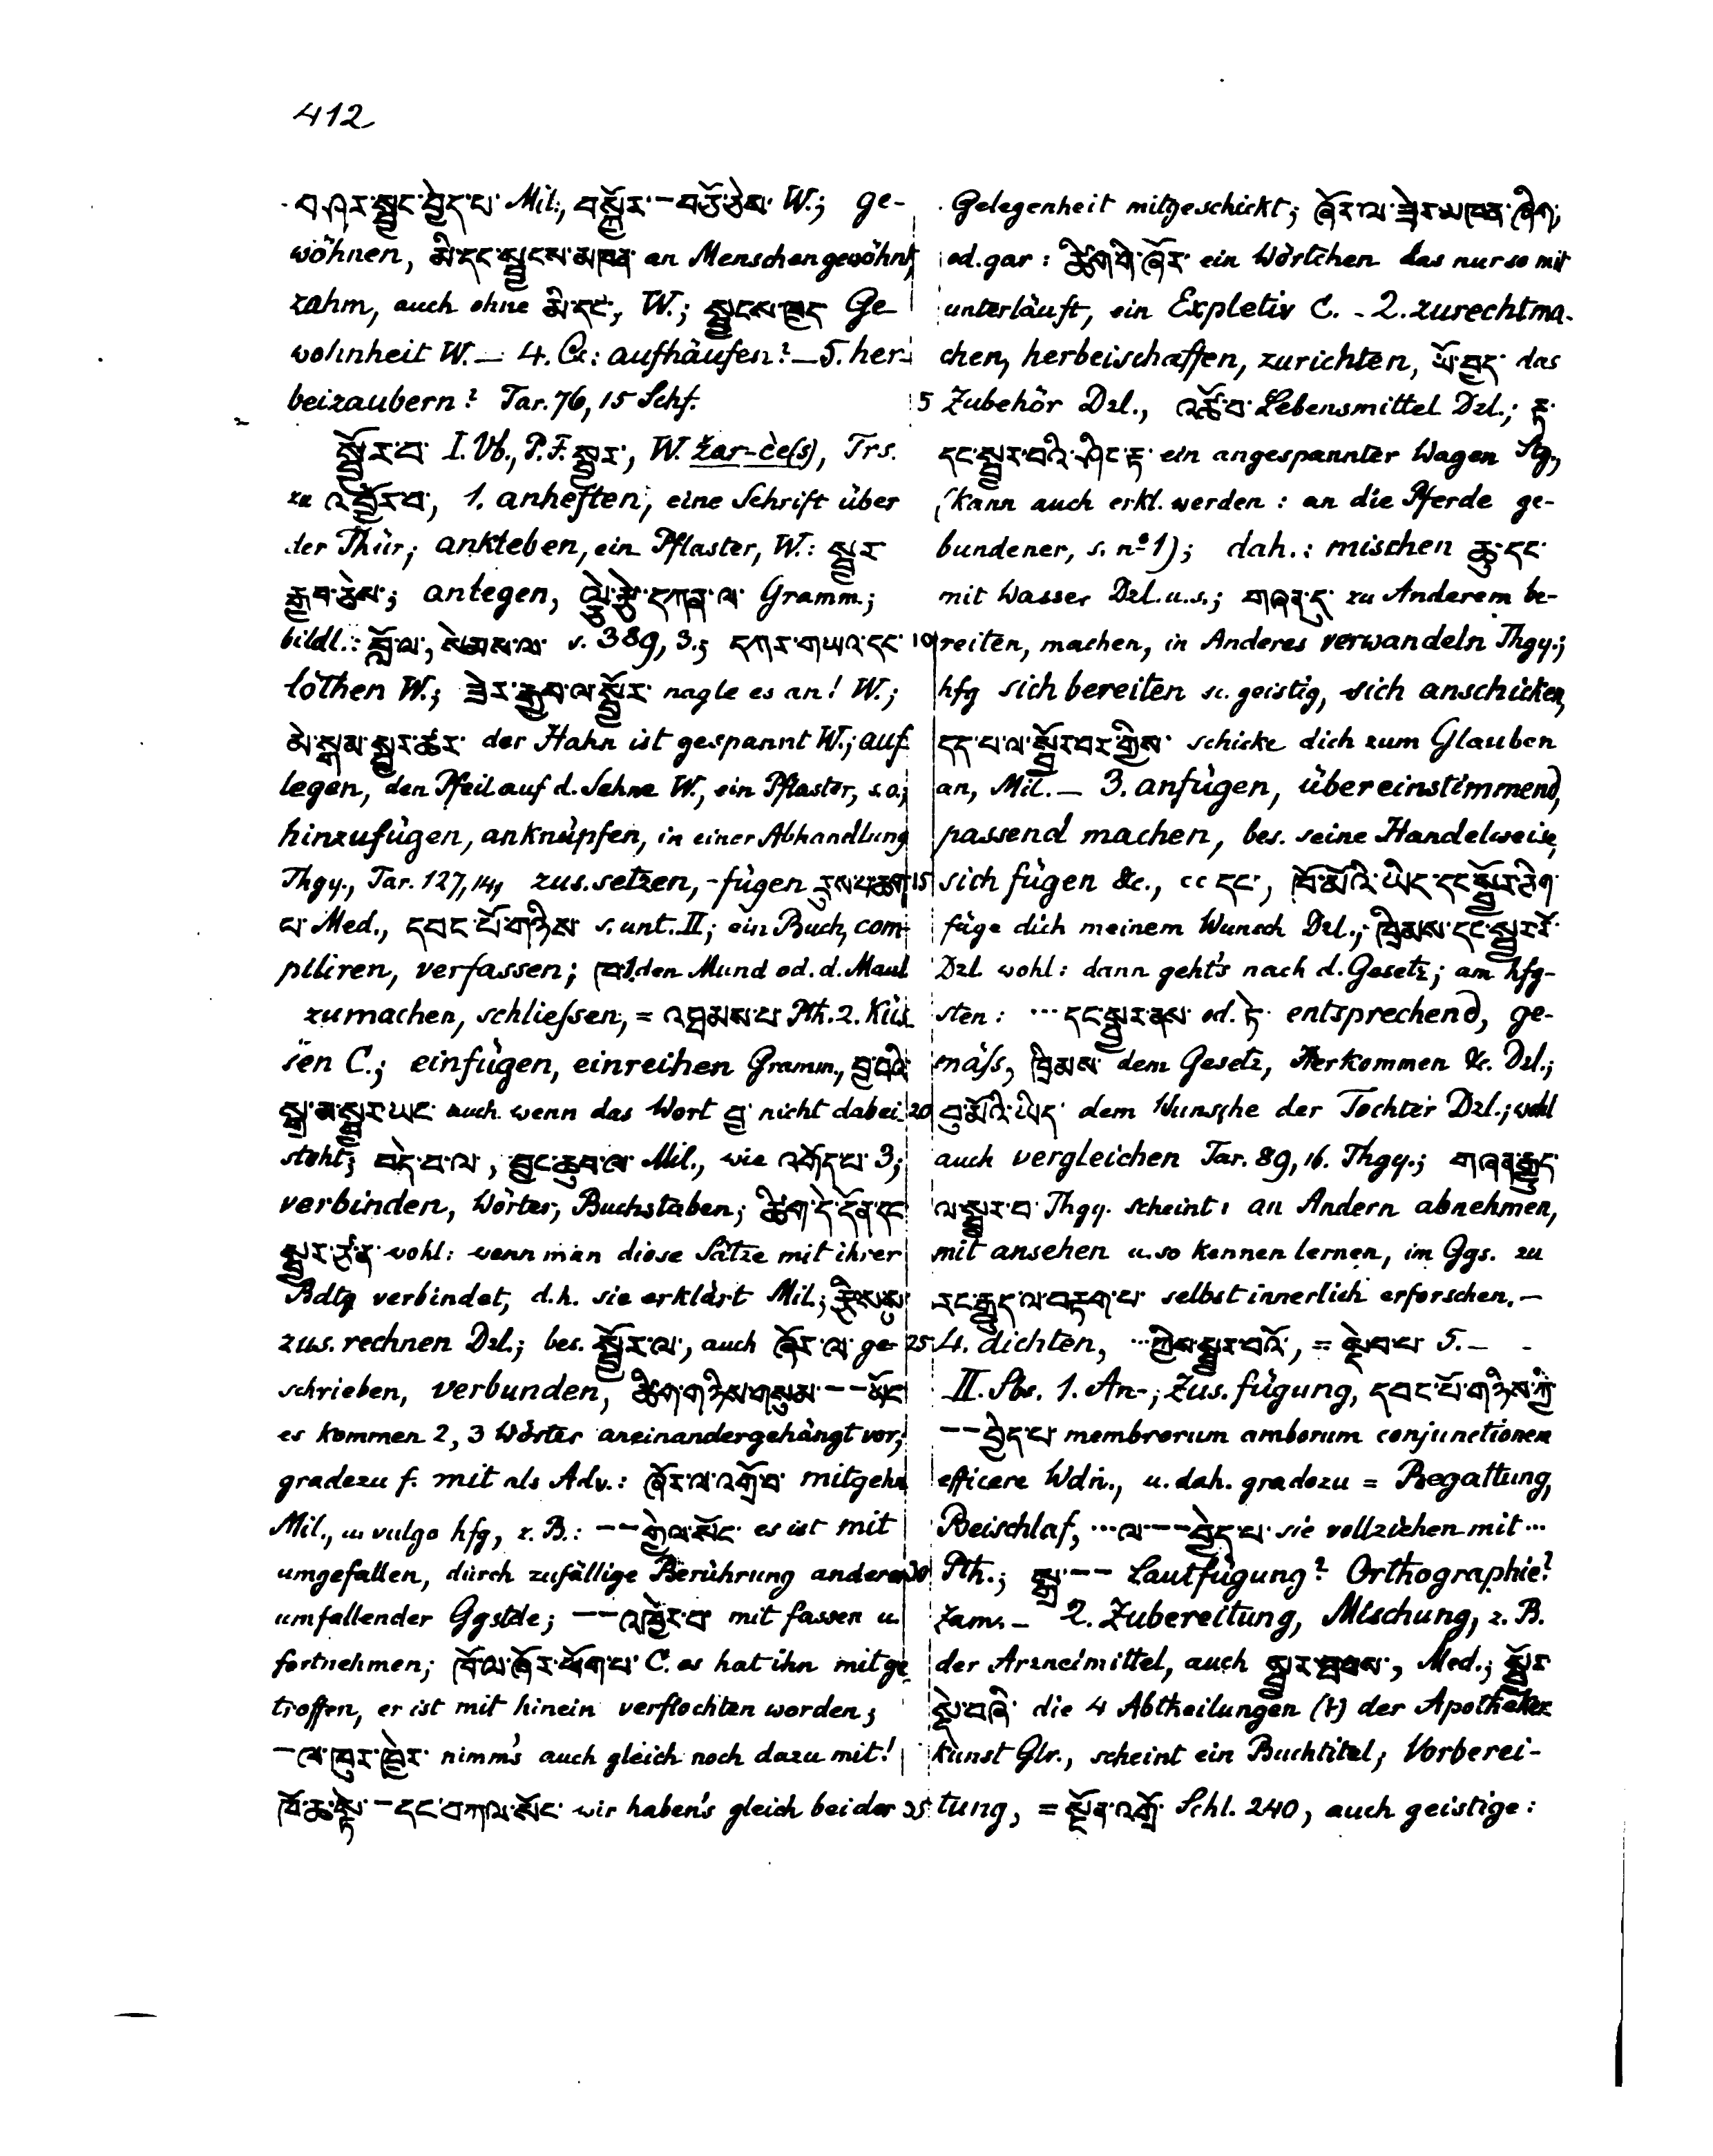 412
བཤར་སྦྱང་བྱེད་པ་ Mil., བསྐྱོར་–བཅོ་ཅེས་ W.; ge-
wöhnen, མི་དང་སྦྱངས་མཁན་ an Menschen gewöhnt,
zahm, auch ohne མི་དང་, W.; སྦྱངས་ཁྱད Ge-
wohnheit W. — 4. Cs: aufhäufen? — 5. her-
beizaubern? Tar. 76, 15 Schf.
སྦྱོར་བ་ I. Vb., P. F. སྦྱར་, W. žar-c̀e(s), Trs.
zu འབྱོར་བ, 1. anheften, eine Schrift über
der Thür; ankleben, ein Pflaster, W.: སྦྱར
རྒྱབ་ཅེས་; anlegen, ལྕེ་རྩེ་དཀན་ལ་ Gramm.;
bildl.: བློ་ལ་, སེམས་ལ་ s. 389, 3.; དཀར་གཡའ་དང་
löthen W.; ཟེར་རྒྱབ་ལ་སྦྱོར་ nagle es an! W.;
མེ་སྐམ་སྦྱར་ཚར་ der Hahn ist gespannt W.; auf-
legen, den Pfeil auf d. Sehne W., ein Pflaster, s.o.;
hinzufügen, anknüpfen, in einer Abhandlung
Thgy., Tar. 127, 14, zus.setzen, -fügen རུས་པ་ཆག་
པ་ Med., དབང་པོ་གཉིས་ s. unt. II; ein Buch, com-
piliren, verfassen; ཁ་ den Mund od. d. Maul
zumachen, schließen, = འཛུམས་པ་ Pth. 2. Küs-
sen C.; einfügen, einreihen Gramm., བྱ་བའི་
སྒྲ་མ་སྦྱར་ཡང་ auch wenn das Wort བྱ་ nicht dabei
steht; བདེ་བ་ལ་, བྱང་ཆུབ་ལ་ Mil., wie འགོད་པ་ 3;
verbinden, Wörter, Buchstaben; ཚིག་དེ་དོན་དང
སྦྱར་ན་ wohl: wenn man diese Sätze mit ihrer
Bdtg verbindet, d.h. sie erklärt Mil.; རྩིས་སུ་
zus. rechnen Dzl.; bes. སྦྱོར་ལ་, auch ཞོར་ལ་ ge-
schrieben, verbunden, ཚིག་གཉིས་གསུམ་ – – ཡོང
es kommen 2, 3 Wörter aneinandergehängt vor;
gradezu f. mit als Adv.: ཞོར་ལ་འགྲོ་བ་ mitgehn
Mil., u. vulgo hfg, z. B.: – – གྱེལ་སོང་ es ist mit
umgefallen, durch zufällige Berührung anderer
umfallender Ggstde; – – འཁྱེར་བ་ mit fassen u.
fortnehmen; ཁོ་ལ་ཞོར་ཕོག་པ་ C. es hat ihn mit ge-
troffen, er ist mit hinein verflochten worden;
– ལ་ཁུར་ཁྱེར་ nimm's auch gleich noch dazu mit!
ཁོ་ཆ་སྟེ་ – དང་བཀལ་སོང་ wir haben's gleich bei der
Gelegenheit mitgeschickt; ཞོར་ལ་ཟེར་མཁན་ཞིག,
od. gar: ཚིག་གི་ཞོར་ ein Wörtchen das nur so mit
unterläuft, ein Expletiv C. - 2. zurechtma-
chen, herbeischaffen, zurichten, ཡོ་བྱད་ das
5 Zubehör Dzl., འཚོ་བ་ Lebensmittel Dzl.; རྟ་
དང་སྦྱར་བའི་ཤིང་རྟ་ ein angespannter Wagen Stg.,
(kann auch erkl. werden: an die Pferde ge-
bundener, s. no 1); dah.: mischen ཆུ་དང་
mit Wasser Dzl. u.s.; གཞན་དུ་ zu Anderem be-
10 reiten, machen, in Anderes verwandeln Thgy.;
hfg sich bereiten sc. geistig, sich anschicken,
དད་པ་ལ་སྦྱོར་བར་གྱིས་ schicke dich zum Glauben
an, Mil. — 3. anfügen, übereinstimmend,
passend machen, bes. seine Handelweise,
15 sich fügen &c., cc དང་, ཁོ་མོའི་ཡིད་དང་སྦྱོར་ཅིག་
füge dich meinem Wunsch Dzl.; ཁྲིམས་དང་སྦྱར་རོ་
Dzl. wohl: dann geht's nach d. Gesetz; am hfg-
sten: ... དང་སྦྱར་ནས་ od. ཏེ་ entsprechend, ge-
mäß, ཁྲིམས་ dem Gesetz, Herkommen &c. Dzl.;
20 བུ་མོའི་ཡིད་ dem Wunsche der Tochter Dzl.; wohl
auch vergleichen Tar. 89, 16. Thgy.; གཞན་རྒྱུད་
ལ་སྦྱར་བ་ Thgy. scheint: an Andern abnehmen,
mit ansehen u. so kennen lernen, im Ggs. zu
རང་རྒྱུད་ལ་བརྟག་པ་ selbst innerlich erforschen. —
25 4. dichten, ... གྱིས་སྦྱར་བའོ་, = སྡེབ་པ་ 5. —
II. Sbs. 1. An-, Zus. fügung, དབང་པོ་གཉིས་ཀྱི་
– – བྱེད་པ་ membrorum amborum conjunctionem
efficere Wdn., u. dah. gradezu = Begattung,
Beischlaf, ... ལ་ – – བྱེད་པ་ sie vollziehen mit ...
30 Pth.; སྒྲ་ – – Lautfügung? Orthographie?
Zam. — 2. Zubereitung, Mischung, z. B.
der Arzneimittel, auch སྦྱར་ཐབས་, Med.; སྦྱོར
སྡེ་བཞི་ die 4 Abtheilungen (?) der Apotheker
kunst Glr., scheint ein Buchtitel; Vorberei-
35 tung, = སྔོན་འགྲོ་ Schl. 240, auch geistige: